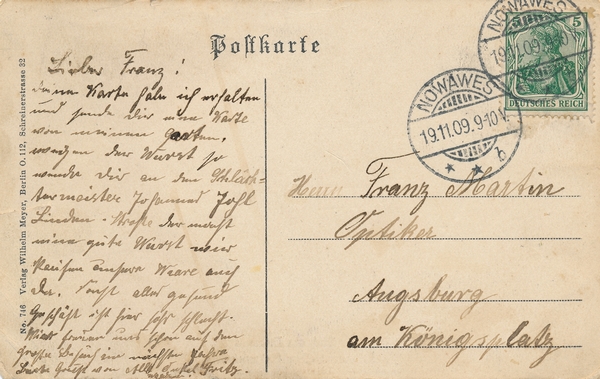 Postkarte
Lieber Franz!
Deine Karte habe ich erhalten
und sende dir eine Karte
von meinen Garten,
wegen der Wurst so
wende dir an den Schläch-
termeister Johannes Johl
Linden-Straße der macht
eine gute Wurst wir
kaufen unsere Ware auch
da. Sonst alles gesund
Geschäft ist hier sehr schlecht.
Wir freuen uns schon auf den
Große Besuch im nächsten Jahre
Beste Grüße von Alle Fritz.
No. 746 Verlag Wilhelm Meyer, Berlin O. 112, Schreinerstrasse 32
NOWAWES
19.11.09.
5
DEUTSCHES REICH
NOWAWES
19.11.09.9-10V.
* * b
Herrn Franz Martin
Optiker
Augsburg
am Königsplatz